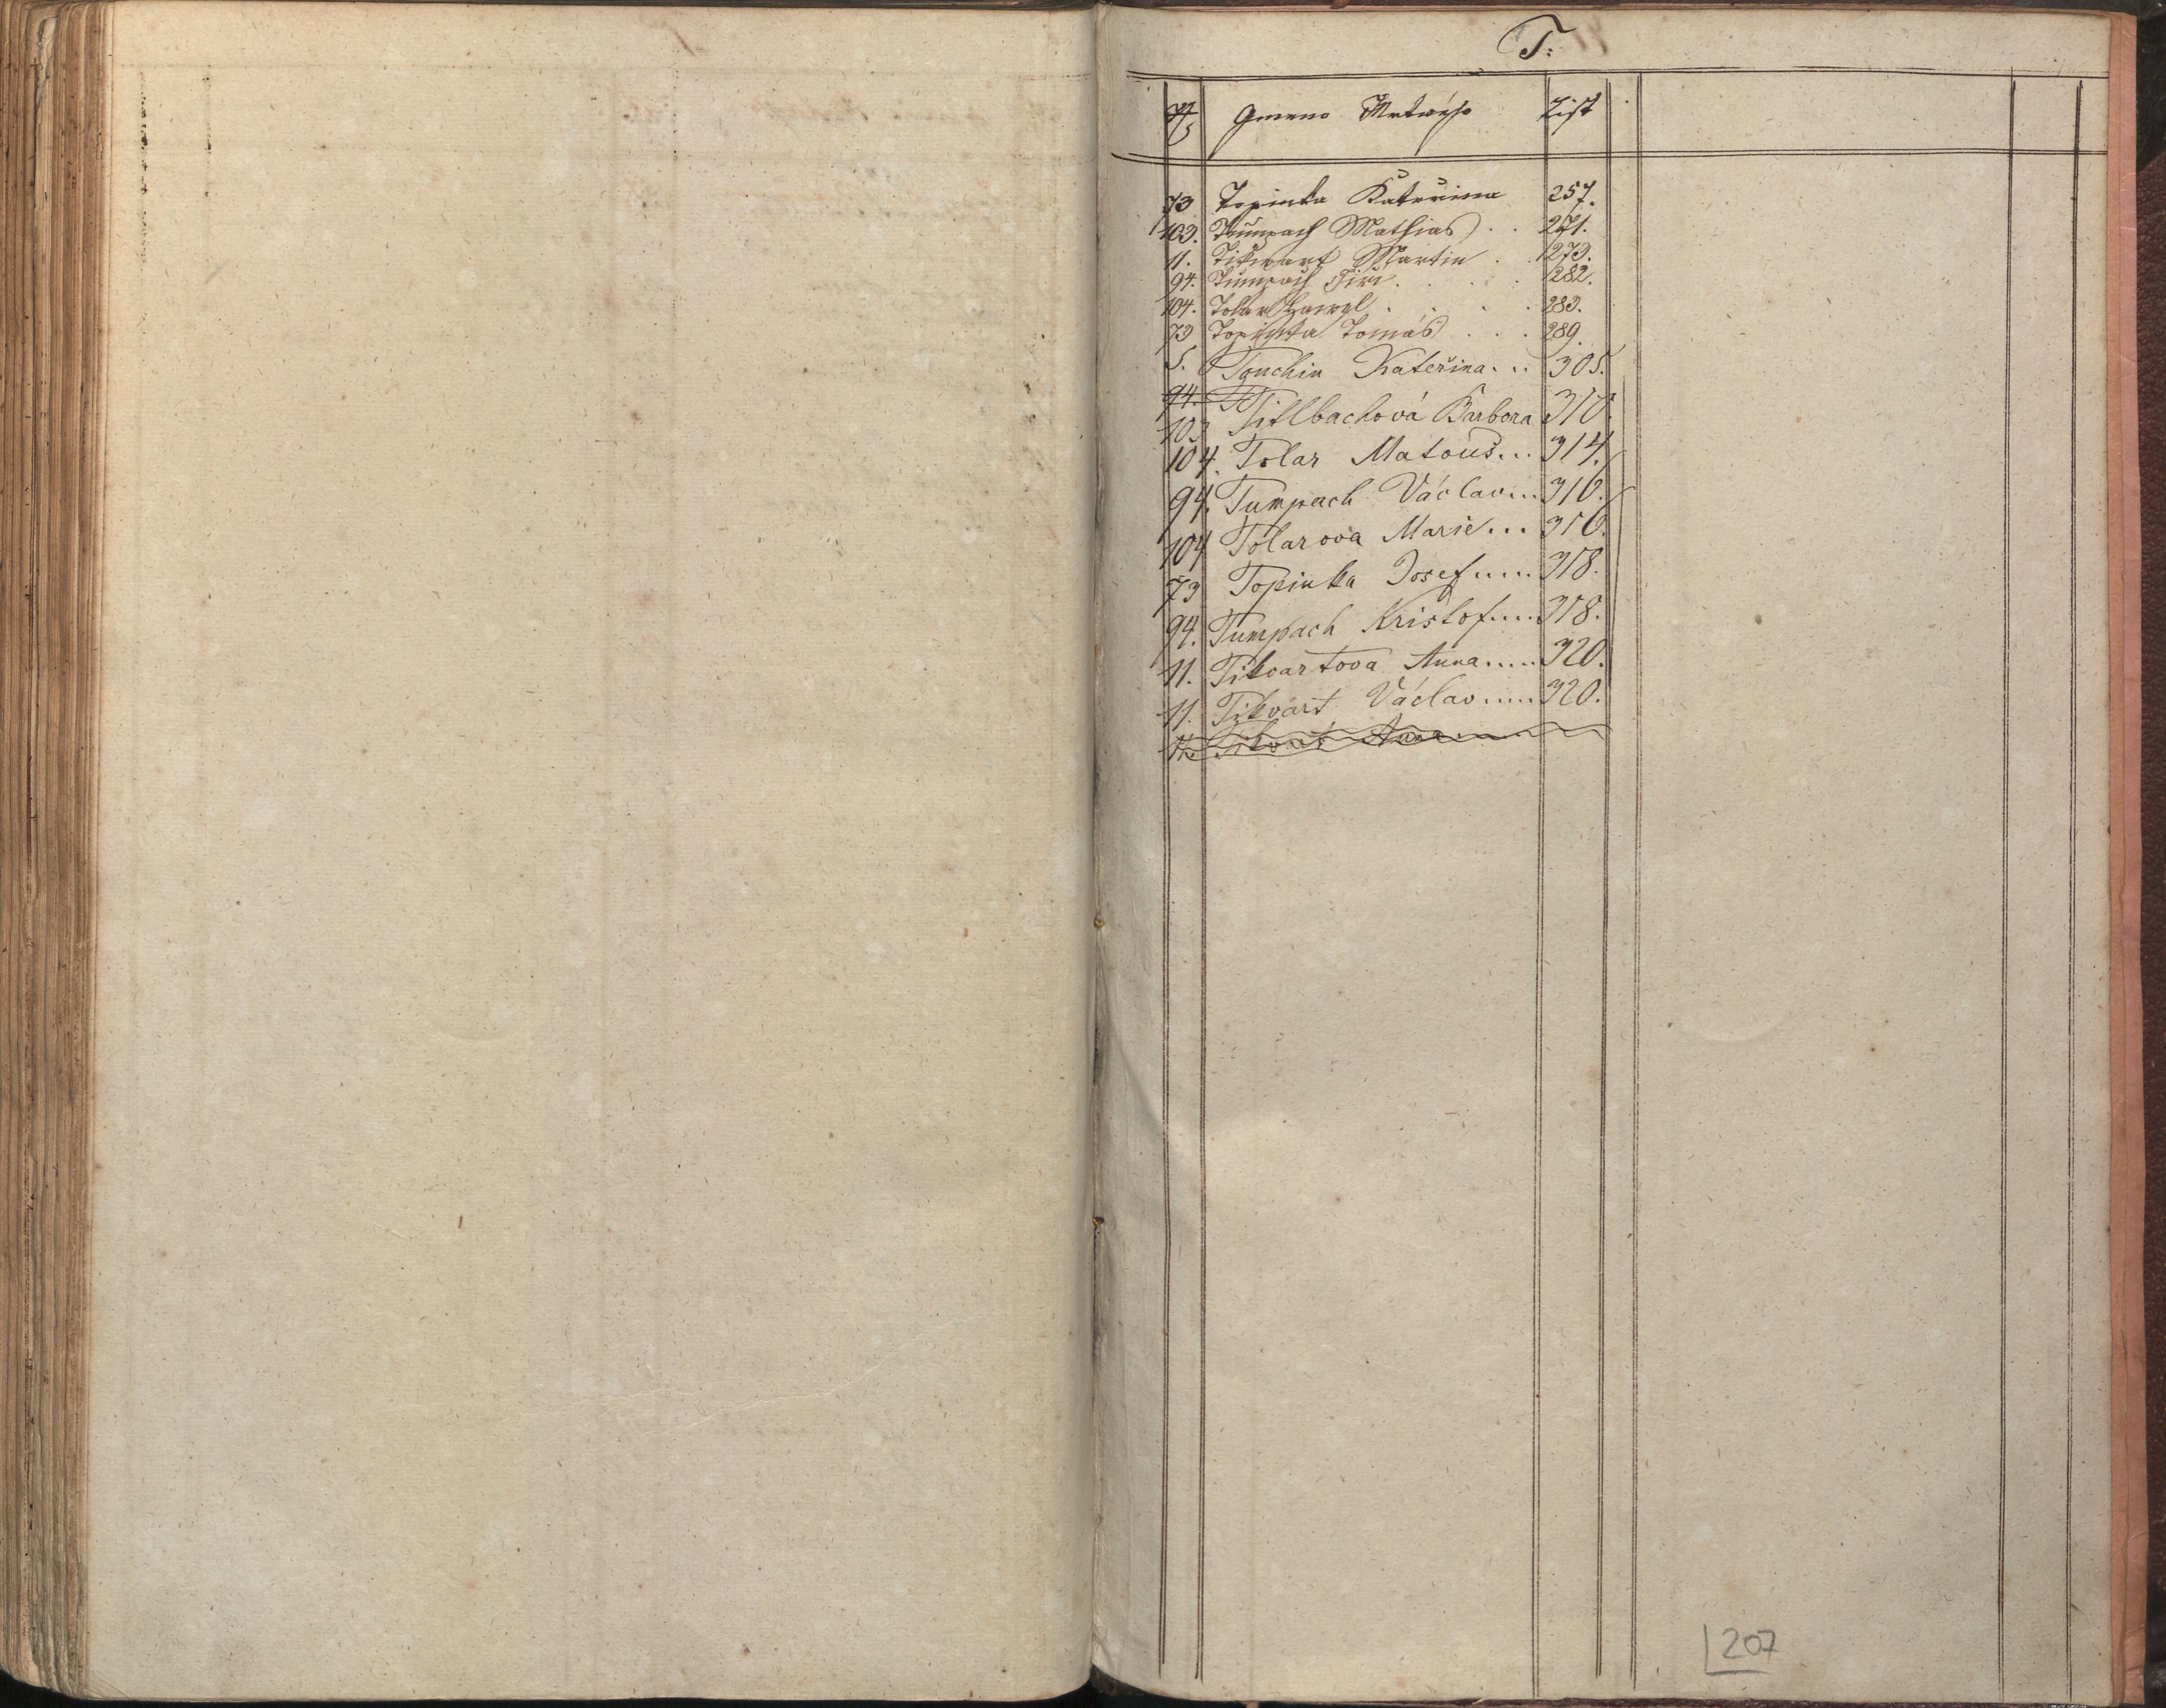 T.
Nº Gmeno Mrtwýho List
73 Topinka Kateřina 257.
103. Tumpach Mathias . . 271.
11. Tikwart Martin . . 273.
94. Tumpach Jiři . . . . 282.
104. Tolar Hawel . . . . 283.
73 Topinka Tomáš . . . 289.
5. Kateřina... 305.
94. T
103 Titlbachová Barbora 310.
104. Tolar Matouš... 314.
94. Tumpach Václav... 316.
104 Tolarova Marie... 316.
73 Topinka Josef..... 318.
94. Tumpach Kristof.... 318.
11. Tikvartova Anna..... 320.
11. Tikvart Václav..... 320.
11. Anna
207